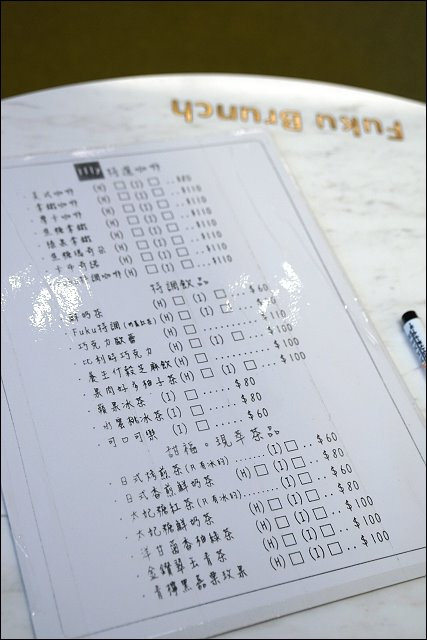 Fuku Brunch
特選咖啡
美式咖啡 (H) □ (I) □ ..$80
拿鐵咖啡 (H) □ (I) □ ...$110
摩卡咖啡 (H) □ (I) □ ...$110
焦糖拿鐵 (H) □ (I) □ ...$110
榛果拿鐵 (H) □ (I) □ ...$110
焦糖瑪奇朵 (H) □ (I) □ ...$110
卡布奇諾 (H) □ (I) □ ...$110
特調咖啡 (H) □ (I) □ ...$110
特調飲品
鮮奶茶 (H) □ (I) □ ...$60
Fuku特調 (H) □ (I) □
巧克力歐蕾 (H) □ (I) □ ...$110
比利時巧克力 (H) □ (I) □ ...$100
養生什穀芝麻飲 (H) □ ...$100
果肉好多柚子茶 (H) □ (I) □ ...$100
蘋果冰茶 (I) □ ...$80
水蜜桃冰茶 (I) □ ...$80
可口可樂 (I) □ ...$60
甜福。現萃茶品
日式焙煎茶(只有冰的) ......(I) □ ...$60
日式香煎鮮奶茶 (H) □ (I) □ ...$80
太妃糖紅茶(只有冰的) ......(I) □ ...$60
太妃糖鮮奶茶 (H) □ (I) □ ...$80
洋甘菊香柚綠茶 (H) □ (I) □ ...$100
金鑽翠玉青茶 (H) □ (I) □ ...$100
青檸黑磊漿玫果 (H) □ (I) □ ...$100